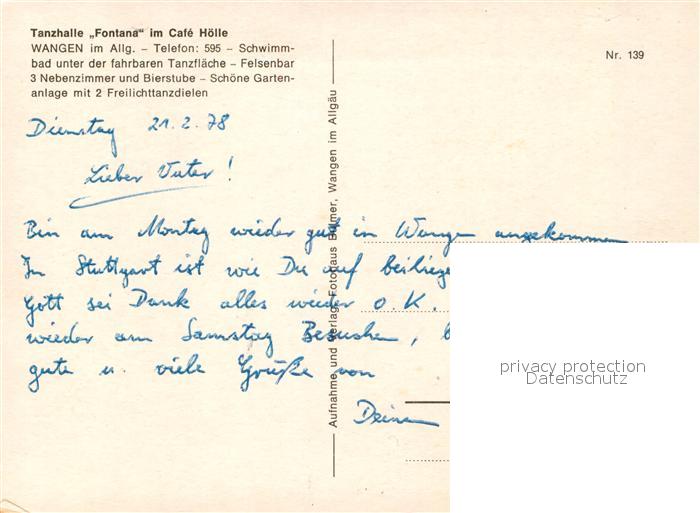 Tanzhalle „Fontana“ im Café Hölle
WANGEN im Allg. – Telefon: 595 – Schwimm-
bad unter der fahrbaren Tanzfläche – Felsenbar
3 Nebenzimmer und Bierstube – Schöne Garten-
anlage mit 2 Freilichttanzdielen
Nr. 139
Dienstag 21.2.78
Lieber Vater!
Bin am Montag wieder gut in Wangen angekommen
In Stuttgart ist wie Du auf beilieg
Gott sei Dank alles wieder O.K.
wieder am Samstag Besuchen,
gute u. viele Grüße von
Deine
Aufnahme und Verlag: Fotohaus Bulmer, Wangen im Allgäu
privacy protection
Datenschutz